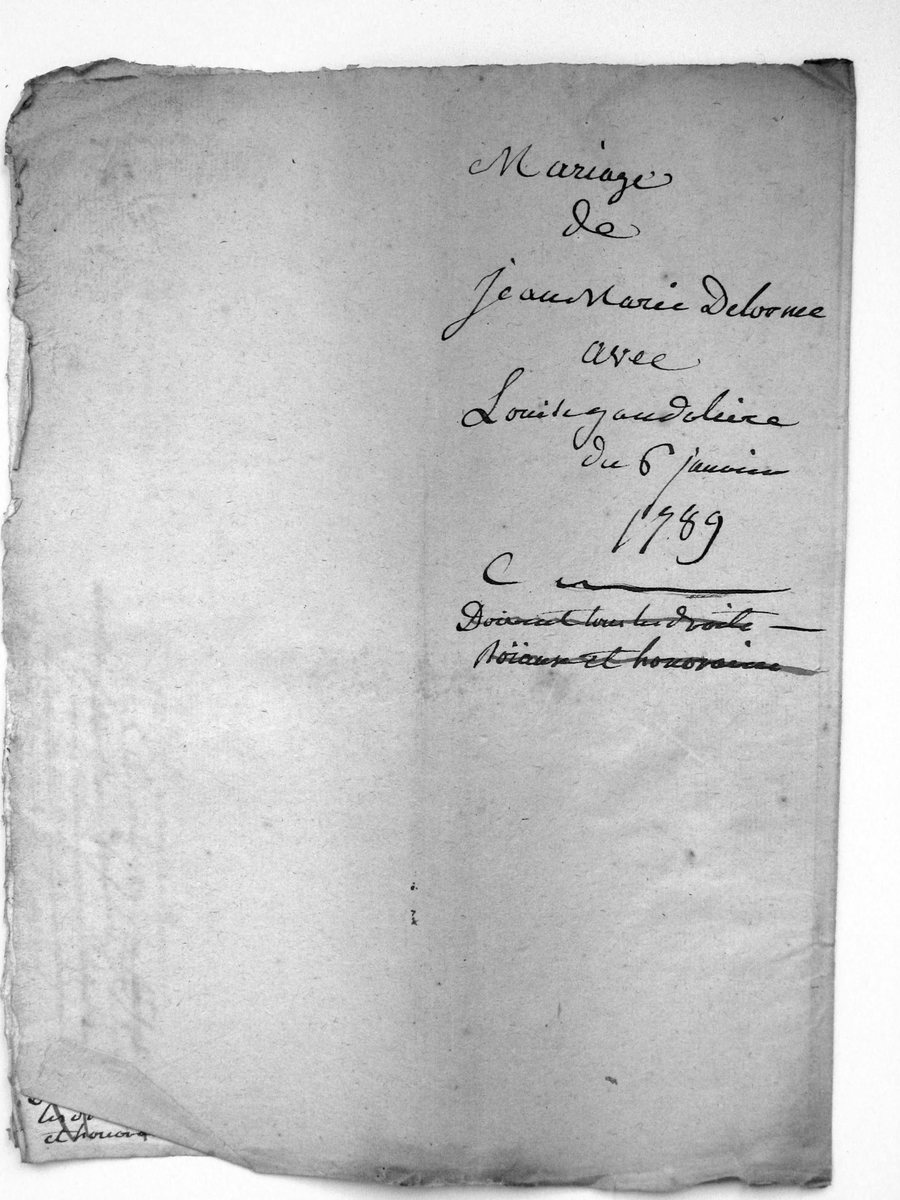 Mariage
de
Jean Marie Delorme
avec
Louise gaudeliere
du 6 janvier
1789
C
Doivent tous les droits
Roïaux et honoraires
et honora